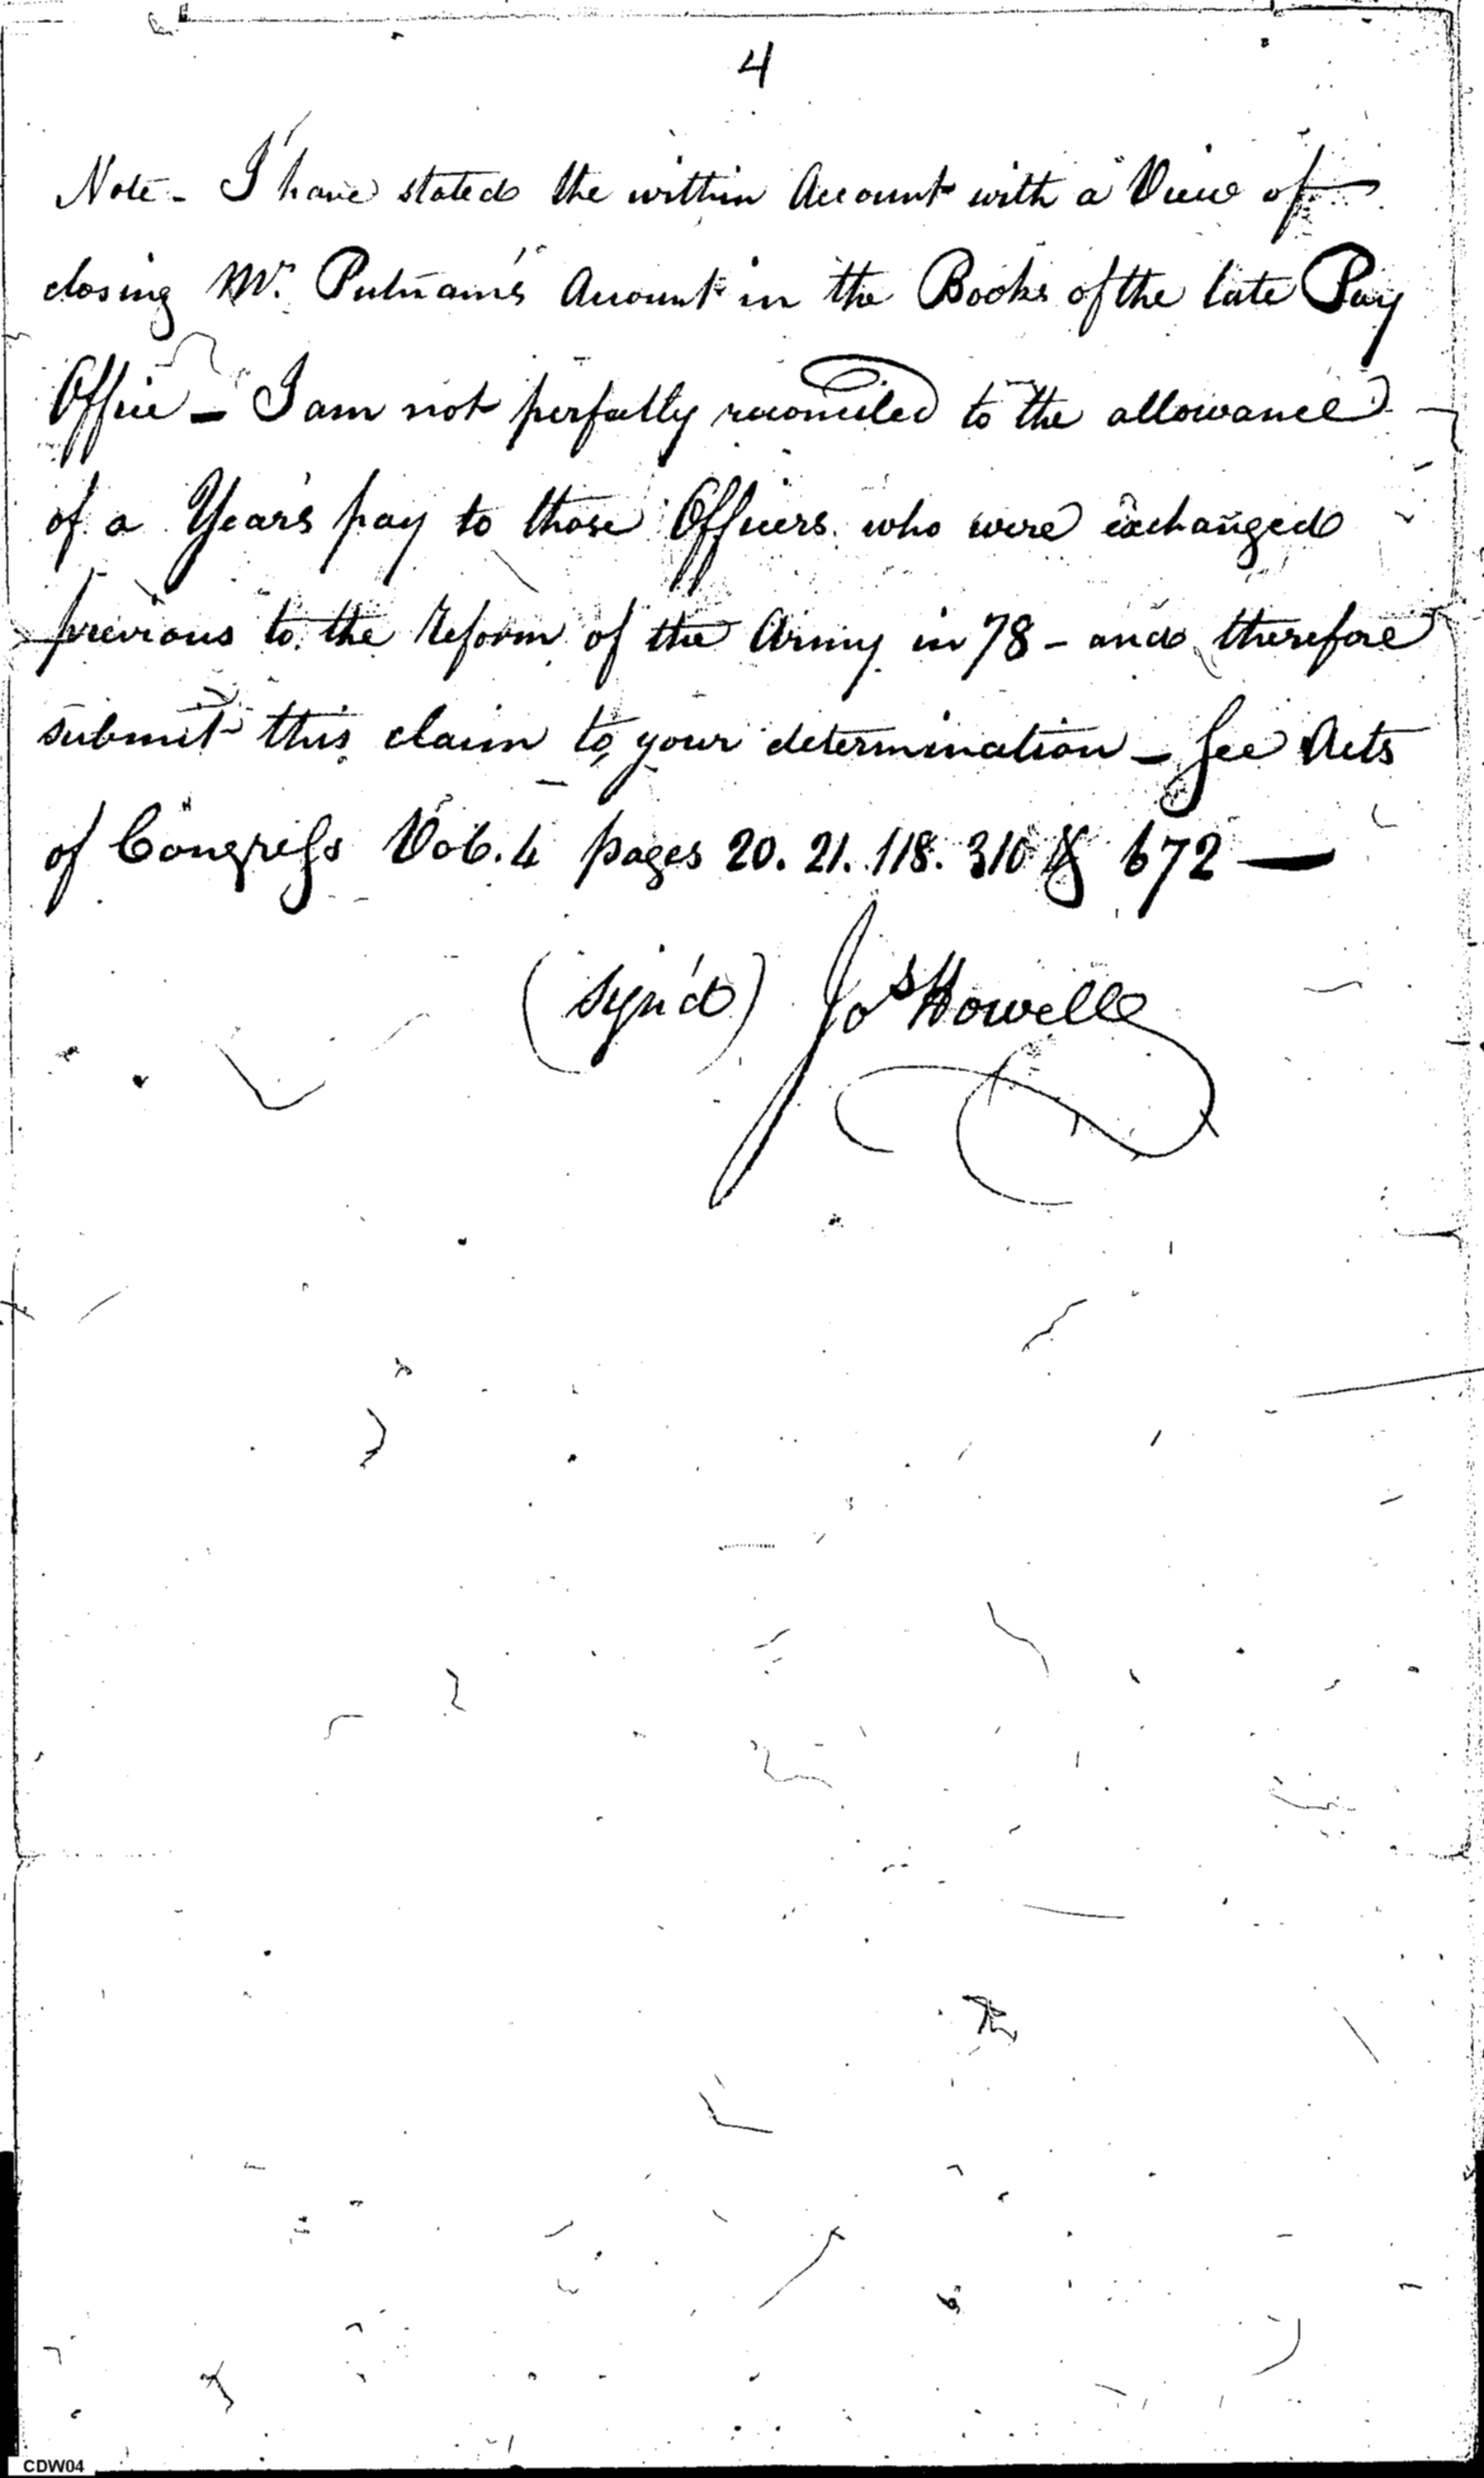 4
Note - I have stated the within Account with a View of
closing Mr. Putnam's Account in the Books of the late Pay
Office - I am not perfectly reconciled to the allowance
of a Year's pay to those Officers who were exchanged
previous to the Reform of the Army in 78 - and therefore
submit this claim to your determination - See Acts
of Congress Vol. 4 pages 20. 21. 118. 310 & 672 —
(sign'd) Jos Howell
CDW04